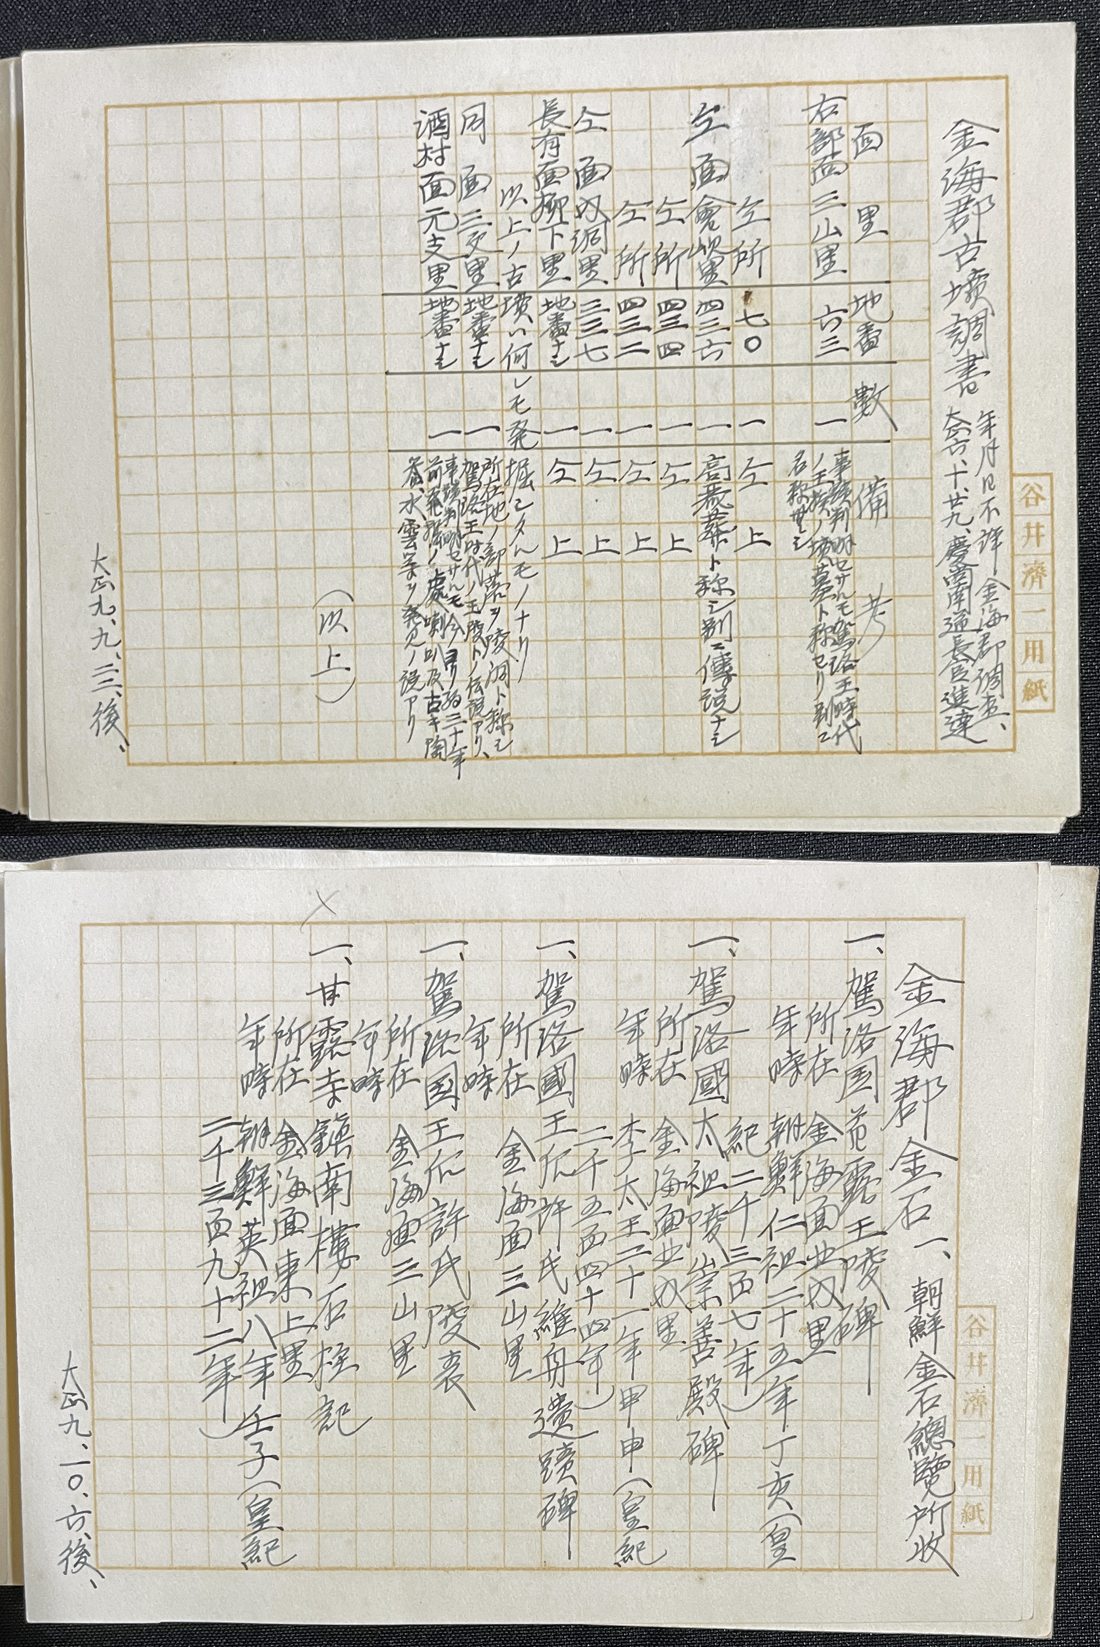 谷井濟一用紙
金海郡古墳調書
年月日不詳 金海郡調査、
大正六、十、廿九、慶尚南道長官進達
面 里 地番 數 備 考
右部面三山里 六三 一 事蹟判明セサルモ駕洛王時代
ノ王族ノ墳墓ト称セリ別ニ
名称無シ
仝所 七〇 一 仝 上
仝面會峴里 四三六 一 高麗葬ト称シ別ニ傳説ナシ
仝所 四三四 一 仝 上
仝所 四三二 一 仝 上
仝面奴洞里 三三七 一 仝 上
長有面柳下里 地番ナシ 一 仝 上
以上ノ古墳ハ何レモ発掘シタルモノナリ
同 面三文里 地番ナシ 一 所在地ノ部落ヲ陵洞ト称シ
駕洛王時代ノ王陵トノ伝説アリ、
酒村面元支里 地番ナシ 一 事蹟判明セサルモ今ヨリ約三十年
前発掘ノ處喇叭及古キ陶
器、水雲等ヲ発見ノ説アリ
(以上)
大正九、九、三三、後、
谷井濟一用紙
金海郡金石一、朝鮮金石總覽所收
一、駕洛国首露王陵碑
所在 金海面北内里
年時 朝鮮仁祖二十五年丁亥(皇
紀二千三百七年)
一、駕洛國太祖陵崇善殿碑
所在 金海面北内里
年時 李太王二十一年甲申(皇紀
二千五百四十四年)
一、駕洛國王妃許氏維舟遺蹟碑
所在 金海面三山里
年時
一、駕洛国王妃許氏陵表
所在 金海面三山里
年時
一、甘露寺鎮南樓石柱記
所在 金海面東上里
年時 朝鮮英祖八年壬子(皇紀
二千三百九十二年)
大正九、一〇、六、後、